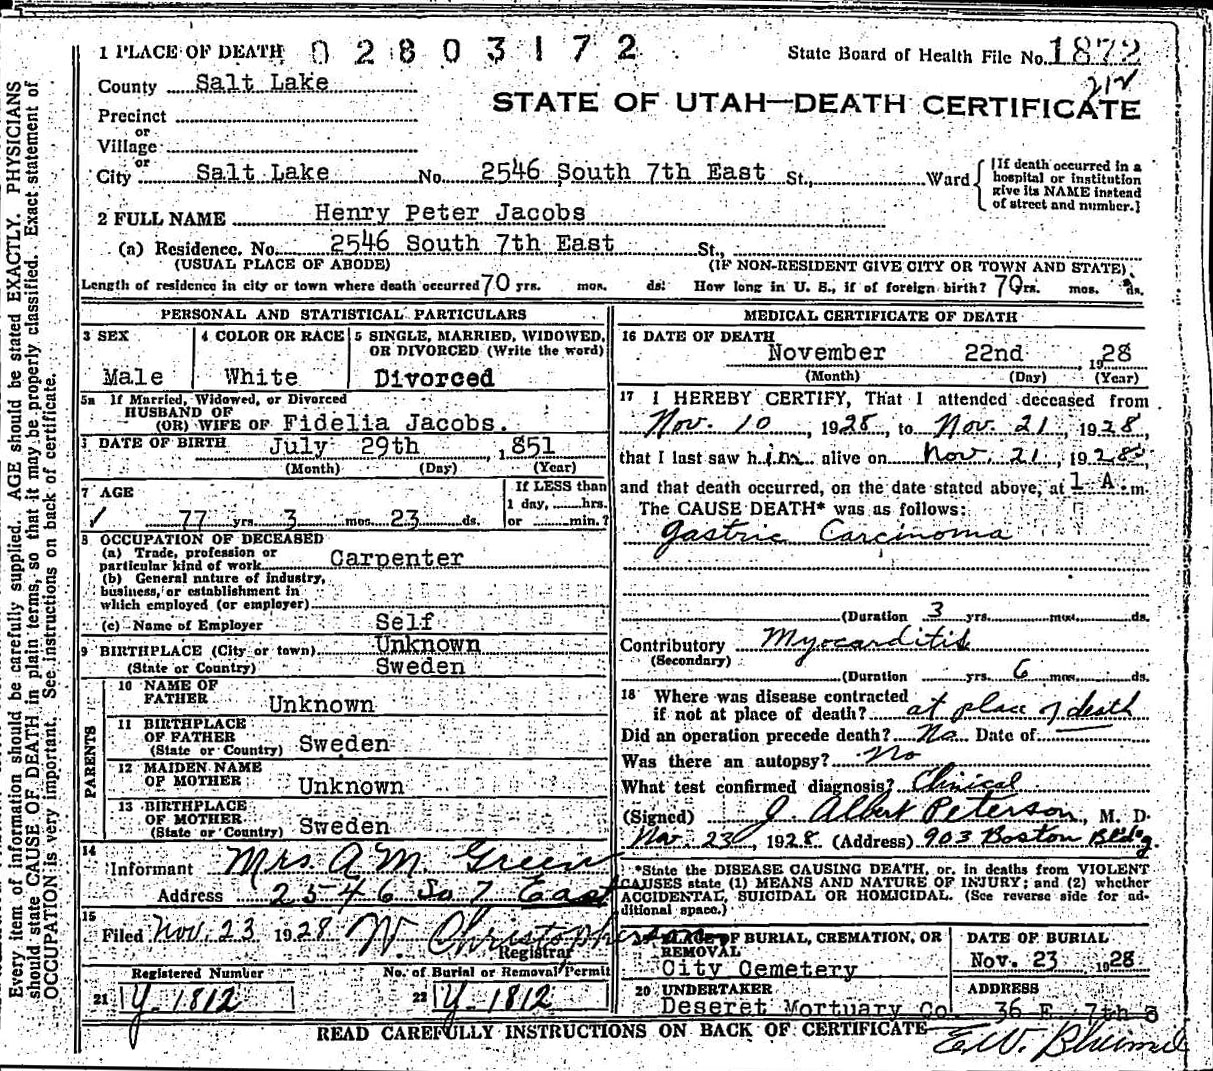 Every item of information should be carefully supplied. AGE should be stated EXACTLY. PHYSICIANS
should state CAUSE OF DEATH in plain terms, so that it may be properly classified. Exact statement of
OCCUPATION is very important. See instructions on back of certificate.
1 PLACE OF DEATH 02803172 State Board of Health File No. 1872
212
County Salt Lake
STATE OF UTAH—DEATH CERTIFICATE
Precinct
or
Village
or
City Salt Lake No. 2546 South 7th East St., Ward
[If death occurred in a
hospital or institution
give its NAME instead
of street and number.]
2 FULL NAME Henry Peter Jacobs
(a) Residence. No. 2546 South 7th East St.,
(USUAL PLACE OF ABODE) (IF NON-RESIDENT GIVE CITY OR TOWN AND STATE)
Length of residence in city or town where death occurred 70 yrs. mos. ds. How long in U. S., if of foreign birth? 70 yrs. mos. ds.
PERSONAL AND STATISTICAL PARTICULARS
3 SEX
Male
4 COLOR OR RACE
White
5 SINGLE, MARRIED, WIDOWED,
OR DIVORCED (Write the word)
Divorced
5a If Married, Widowed, or Divorced
HUSBAND OF
(OR) WIFE OF Fidelia Jacobs.
DATE OF BIRTH July 29th, 1851
(Month) (Day) (Year)
7 AGE
77 yrs. 3 mos. 23 ds.
If LESS than
1 day, hrs.
or min.?
8 OCCUPATION OF DECEASED
(a) Trade, profession or
particular kind of work Carpenter
(b) General nature of industry,
business, or establishment in
which employed (or employer)
(c) Name of Employer Self
9 BIRTHPLACE (City or town) Unknown
(State or Country) Sweden
PARENTS
10 NAME OF
FATHER Unknown
11 BIRTHPLACE
OF FATHER
(State or Country) Sweden
12 MAIDEN NAME
OF MOTHER Unknown
13 BIRTHPLACE
OF MOTHER
(State or Country) Sweden
14
Informant Mrs A M. Green
Address 2546 So 7 East
15
Filed Nov. 23 1928 W. Christopherson
Registrar
Registered Number No. of Burial or Removal Permit
21 Y-1812 22 Y-1812
MEDICAL CERTIFICATE OF DEATH
16 DATE OF DEATH
November 22nd, 1928
(Month) (Day) (Year)
17 I HEREBY CERTIFY, That I attended deceased from
Nov. 10, 1928, to Nov. 21, 1928,
that I last saw him alive on Nov. 21, 1928
and that death occurred, on the date stated above, at 1 A.m.
The CAUSE DEATH* was as follows:
Gastric Carcinoma
(Duration 3 yrs. mos. ds.
Contributory Myocarditis
(Secondary)
(Duration yrs. 6 mos. ds.
18 Where was disease contracted
if not at place of death? at place of death
Did an operation precede death? No Date of
Was there an autopsy? No
What test confirmed diagnosis? Clinical
(Signed) J. Albert Peterson, M. D.
Nov. 23, 1928 (Address) 903 Boston Bldg
*State the DISEASE CAUSING DEATH, or, in deaths from VIOLENT
CAUSES state (1) MEANS AND NATURE OF INJURY; and (2) whether
ACCIDENTAL, SUICIDAL OR HOMICIDAL. (See reverse side for ad-
ditional space.)
PLACE OF BURIAL, CREMATION, OR
REMOVAL
City Cemetery
DATE OF BURIAL
Nov. 23 1928
20 UNDERTAKER ADDRESS
Deseret Mortuary Co. 36 E. 7th S
READ CAREFULLY INSTRUCTIONS ON BACK OF CERTIFICATE
E.W.